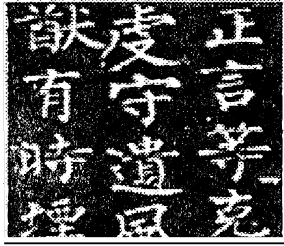 正言等克
虔守遺風
猷有時堙